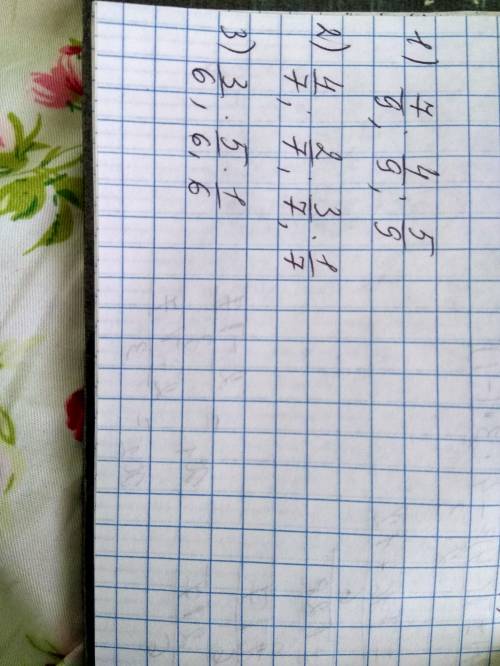 1) 7/9; 4/9; 5/9
2) 4/7; 2/7; 3/7; 1/7
3) 3/6; 5/6; 1/6